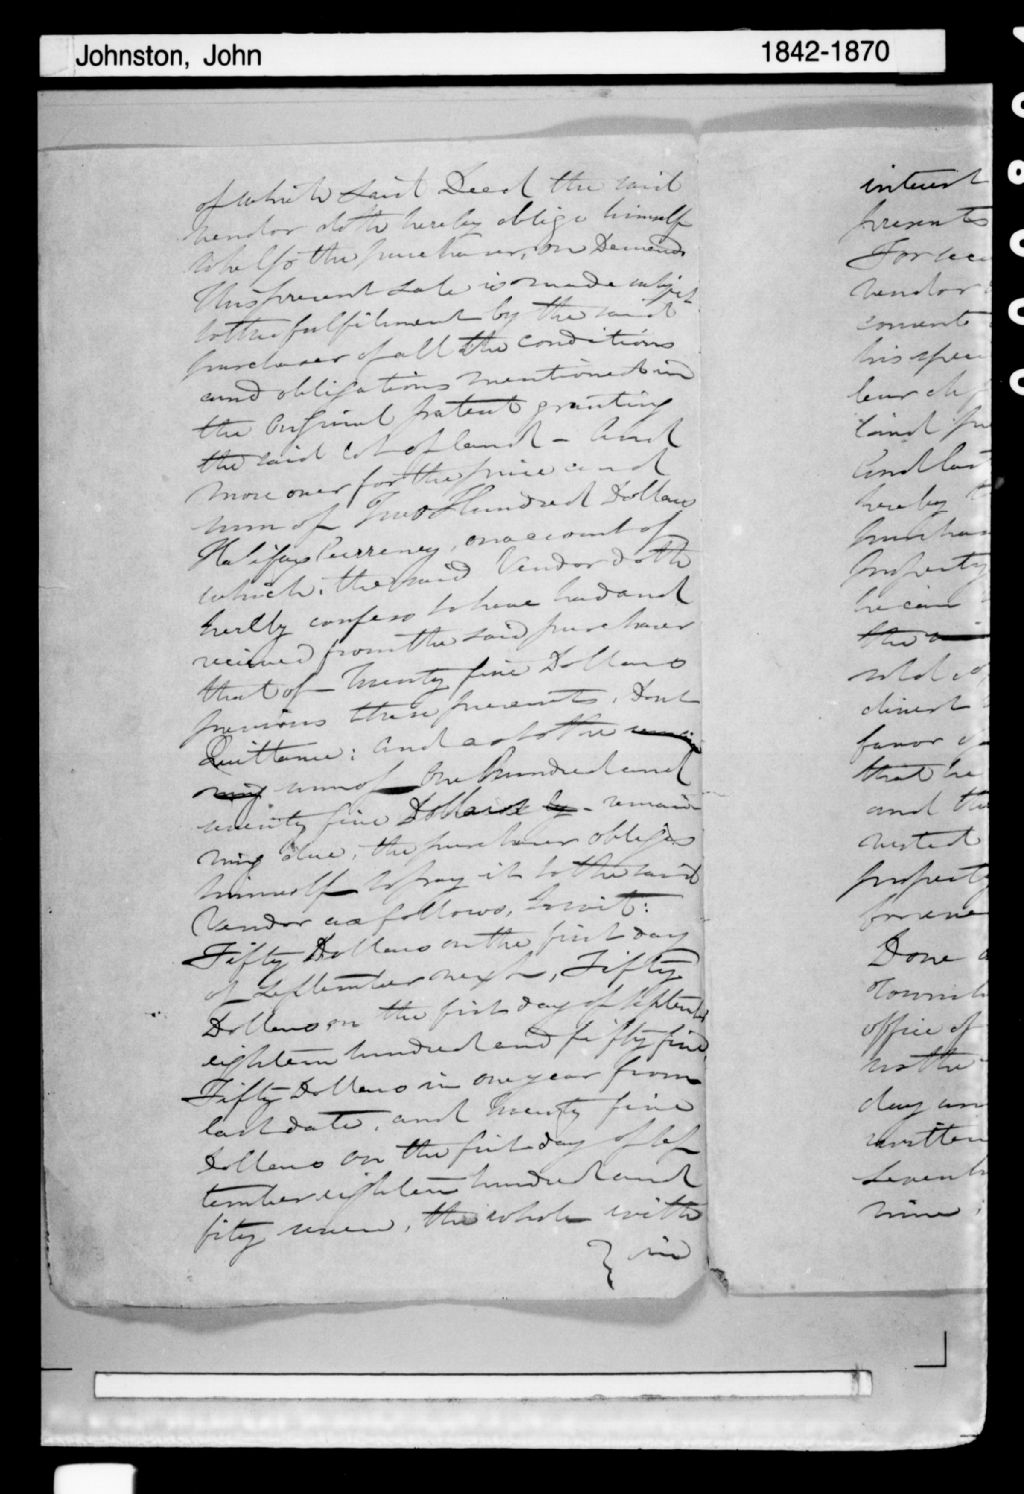 Johnston, John 1842-1870
of which said Deed the said
vendor doth hereby oblige himself
to help the purchaser, on Demand
This present Sale is made subject
to the fulfilment by the said
purchaser of all the conditions
and obligations mentioned in
the Original patent granting
the said Lot of land - And
more over for the price and
sum of Two Hundred Dollars
Halifax Currency, on account of
which, the said Vendor doth
hereby confess to have had and
received from the said purchaser
that of - Twenty five Dollars
previous these presents, Dont
Quittance: and as to the remai
ning sum of One hundred and
seventy five Dollars by - remain
ning due, the purchaser obliges
himself to pay it to the said
Vendor as follows, to wit:
Fifty Dollars on the first day
of September next, Fifty
Dollars on the first day of September
eighteen hundred and fifty five
Fifty Dollars in one year from
last date, and Twenty five
Dollars on the first day of Sep
tember eighteen hundred and
fity seven, the whole with
in
interest
presents
For
vendor
consent
his
land
And
hereby
property
he can
the
sold
direct
favor
that he
and the
vested
property
Done
office of
day
written
nine